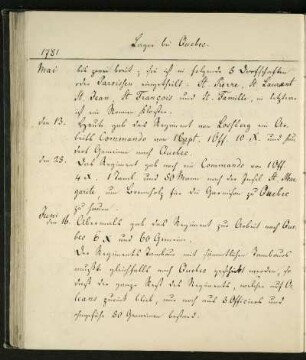 Lager bei Quebec.
1781
Mai
bis zwei breit; die ist in folgende 5 Dorfschaften
oder Paroissen eingetheilt, St Pierre, St Laurent
St Jean, St François und St Famille, in letzterer
ist ein Nonnen Kloster.
den 13.
Heute gab das Regiment von Lossberg ein Ar-
beits Commando von 1 Capt. 1 Off. 10 X. und
dert Gemeine nach Quebec.
den 23.
Das Regiment gab noch ein Commando von 1 Off
4 X. 1 Tamb. und 58 Mann nach der Insel St Mar-
garite um Brennholz für die Garnison zu Quebec
zu hauen.
Juni
den 16.
Abermals gab das Regiment zu Arbeit nach Que-
bec 6 X und 60 Gemeine.
Der Regiments Tambour mit sämmtlichen Tambours
mußte gleichfalls nach Quebec geschickt werden, so
daß der ganze Rest des Regiments, welcher auf Or-
leans zurück blieb, nur noch aus 3 Officiers und
ohngefähr 50 Gemeinen bestand.